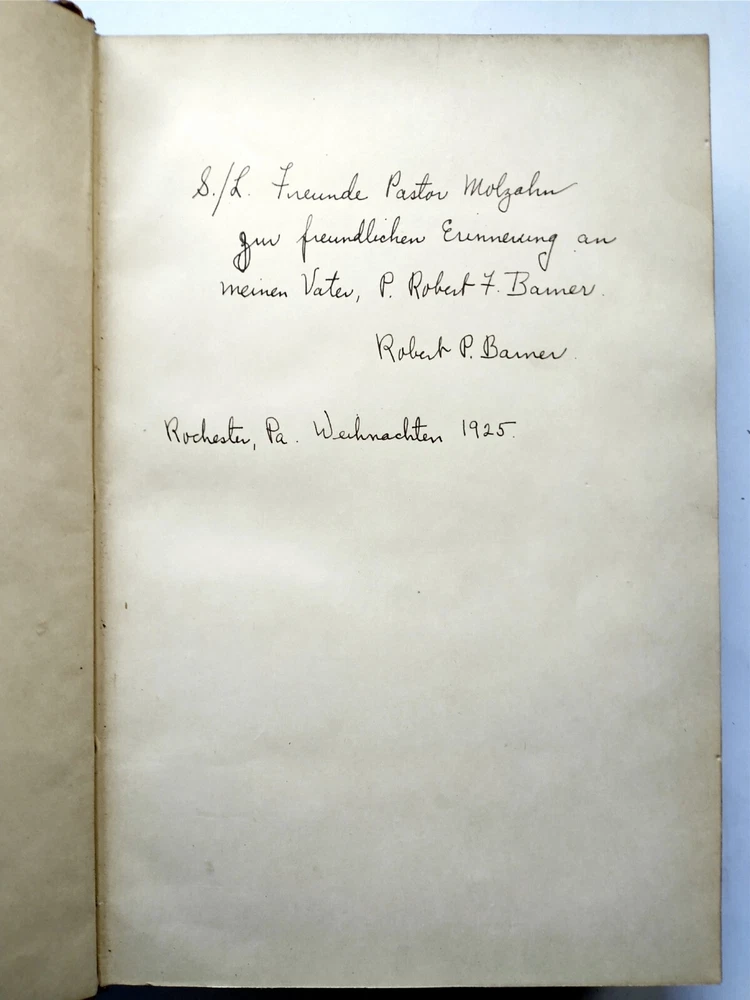 S./L. Freunde Pastor Molzahn
zur freundlichen Erinnerung an
meinen Vater, P. Robert F. Barner.
Robert P. Barner.
Rochester, Pa. Weihnachten 1925.